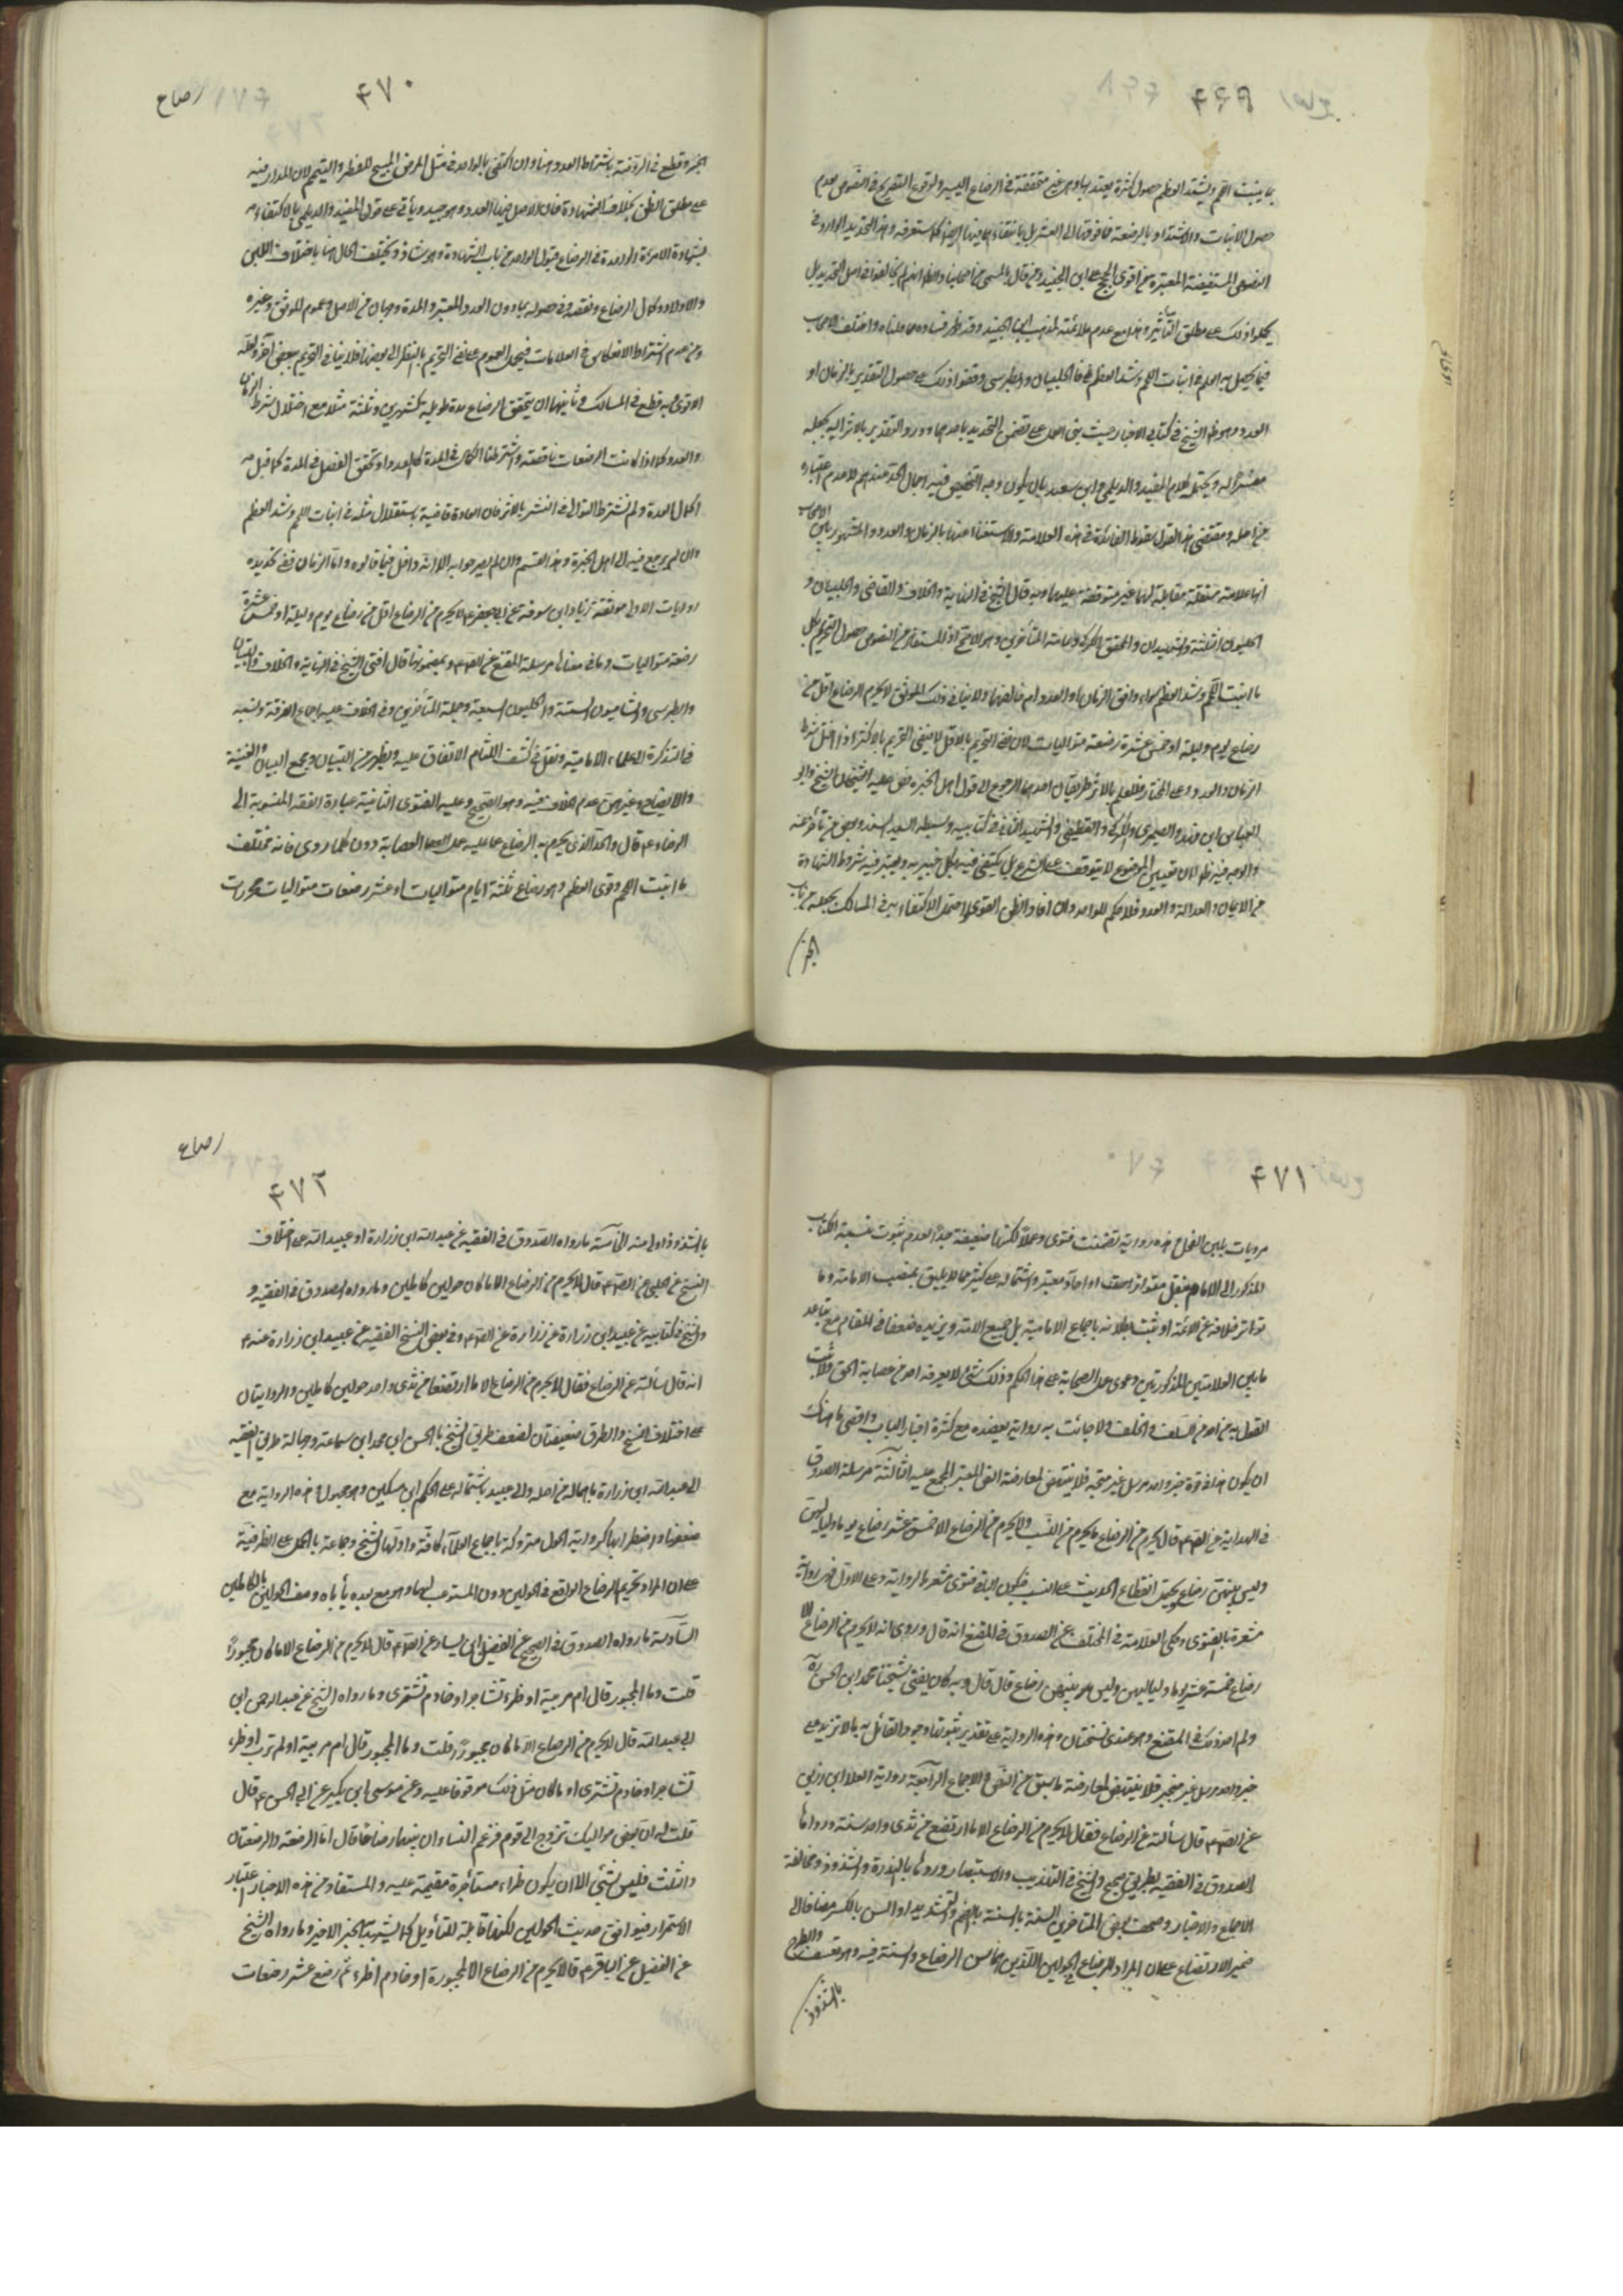 رضاع ۴۶۹
بما ينبت اللحم ويشتد العظم حصول كثرة يعتد بها وهي غير متحققة في الرضاع اليسير ولوقوع التصريح في النصوص بعدم
حصول الانبات والاشتداد بالرضعة فما فوقها الى العشر بل بانتفاء فيها ايضا كما ستعرفه وهذا التحديد الوارد في
النصوص المستفيضة المعتبرة من اقوى الحجج على ابن الجنيد ومن قال بالمسمى من اصحابنا والظاهر انهم لم يخالفوا في اصل التحديد بل
حملوا ذلك على مطلق التأثير وهذا مع عدم ملائمته لمذهب ابن الجنيد وقد ظهر فساده مما قلناه واختلف الاصحاب
فيما يحصل به العلم في انبات اللحم وشد العظم والحلبيان والطبرسي وقفوا ذلك على حصول التقدير بالزمان او
العدد وهو ظاهر الشيخ في كتابي الاخبار حيث بنى العمل على تضمن التحديد باحدهما ورد التقدير بالاثر اليه بجعله
مفسرا له ويحتمله كلام المفيد والديلمي وابن سعيد بان يكون وجه التخصيص فيه اجمال الحد عندهم لا عدم اعتباره
من اصله ومقتضى هذا القول سقوط الفائدة في هذه العلامة والاستغناء عنها بالزمان والعدد والمشهور بين الاصحاب
انها علامة مستقلة مقابلة لهما غير متوقفة عليهما وبه قال الشيخ في النهاية والخلاف والقاضي والحلبيان و
الحليون الثلثة والشهيدان والمحقق الكركي وعامة المتأخرين وهو الاصح اذ المستفاد من النصوص حصول التحريم بكل
ما انبت اللحم وشد العظم سواء وافق الزمان او العدد ام خالفهما ولا ينافي ذلك الموثق لا يحرم الرضاع اقل من
رضاع يوم وليلة او خمس عشرة رضعة متواليات لان نفي التحريم بالاقل لا ينفي التحريم بالاكثر اذا اختل شرط
الزمان والعدد وعلى المختار فللعلم بالاثر طريقان احدهما الرجوع الى قول اهل الخبرة نص عليه الشيخان الشيخ وابو
العباس ابن فهد والصيمري والكركي والقطيفي والشهيد الثاني في كتابيه وسبطه السيد السند وبعض من تأخر عنه
والوجه فيه ظاهر لان تعيين الموضوع لا يتوقف على الشرع بل يكتفى فيه بكل خبير به ويعتبر فيه شروط الشهادة
من الايمان والعدالة والعدد فلا حكم للواحد وان افاد الظن القوي واحتمل الاكتفاء به في المسالك بجعله من باب
الخبر
رضاع ۴۷۰
الخبر وقطع في الروضة باشتراط العدد هنا وان اكتفى بالواحد في مثل المرض المبيح للفطر والتيمم لان المدار فيه
على مطلق الظن بخلاف الشهادة فان الاصل فيها العدد وهو جيد ويأتي على قول المفيد والديلمي بالاكتفاء
بشهادة الامرأة الواحدة في الرضاع قبول الواحد من باب الشهادة وهو شاذ ويختلف الحال هنا باختلاف اللبن
والاولاد وكمال الرضاع ونقصه وفي حصوله بما دون العدد المعتبر والمدة وجهان من الاصل وعموم الموثق وغيره
ومن عدم اشتراط الانعكاس في العلامات فيحمل العموم على نفي التحريم بالنظر الى بعضها فلا ينافي التحريم ببعض آخر ولعله
الاقوى وبه قطع في المسالك وثانيهما ان يتحقق الرضاع مدة طويلة كشهرين وثلثة مثلا مع اختلال شرط الزمان
والعدد كما اذا كانت الرضعات ناقصة واشترطنا الكمال في المدة كالعدد او تحقق الفصل في المدة كما قيل
اكمال العدة ولم نشترط التوالي في النشر بالاثر فان العادة قاضية باستقلال مثله في انبات اللحم وشد العظم
وان لم يرجع فيه الى اهل الخبرة وهذا القسم وان لم يصرحوا به الا انه داخل فيما قالوه واما الزمان ففي تحديده
روايات الاولى موثقة زياد ابن سوقة عن ابي جعفر ع لا يحرم من الرضاع اقل من رضاع يوم وليلة او خمس عشرة
رضعة متواليات وما في معناها مرسلة المقنع عن الص ع وبمضمونها قال افتى الشيخ في النهاية والخلاف والتبيان
والطبرسي والشاميون الستة والحليون السبعة وجملة المتأخرين وفي الخلاف عليه اجماع الفرقة ونسبه
في التذكرة الى علماء الامامية ونقل في كشف اللثام الاتفاق عليه ويظهر من التبيان ومجمع البيان والغنية
والايضاح وغيرهن عدم الخلاف فيه وهو الصحيح وعليه الفتوى الثانية عبارة الفقه المنسوبة الى
الرضا ع قال والحد الذي يحرم به الرضاع مما عليه عمل العصابة دون كلما روي فانه مختلف
ما انبت اللحم وقوى العظم وهو رضاع ثلثة ايام متواليات او عشر رضعات متواليات محررات
۴۷۱
مرويات بلبن الفحل هذه رواية تضمنت فتوى وعملا لكنها ضعيفة جدا لعدم ثبوت نسبة الكتاب
المذكور الى الامام بنقل متواتر او احاد معتبر واشتماله على كثير مما لا يليق بمنصب الامامة وما
تواتر خلافه عن الائمة او ثبت بطلانه باجماع الامامية بل جميع الامة ويزيده ضعفا في المقام مع تباعد
ما بين العلامتين المذكورتين ودعوى عمل الصحابة على هذا الحكم وذلك شيء لا يعرفه احد من عصابة الحق ولا ثبت
القول به عن احد من السلف والخلف ولا جائت به رواية يعضده مع كثرة اخبار الباب واقصى ما هناك
ان يكون هذا في قوة خبر واحد مرسل غير متجه فلا ينتهض لمعارضة النص المعتبر المجمع عليه الثالثة مرسلة الصدوق
في الهداية عن الص ع قال يحرم من الرضاع ما يحرم من النسب ولا يحرم من الرضاع الا خمس عشر رضاع يوما ولياليهن
وليس بينهن رضاع ويحتمل انقطاع الحديث على النسب فيكون الباقي فتوى مشعرة بالرواية وعلى الاول فهي رواية
مشعرة بالفتوى وحكى العلامة في المختلف عن الصدوق في المقنع انه قال وروى انه لا يحرم من الرضاع الا
رضاع خمسة عشر يوما ولياليهن وليس بينهن رضاع قال قال وبه كان يفتي شيخنا محمد ابن الحسن ره
ولم اجد ذلك في المقنع وهو عندي نسختان وهذه الرواية على تقدير ثبوتها وجود القائل به بالا تزيد على
خبر واحد مرسل غير منجبر فلا ينتهض لمعارضة ما سبق من النص والاجماع الرابعة رواية العلا ابن رزين
عن الص ع قال سألته عن الرضاع فقال لا يحرم من الرضاع الا ما ارتضع من ثدي واحد سنة ورواها
الصدوق في الفقيه بطريق صحيح والشيخ في التهذيب والاستبصار وردها بالندرة والشذوذ ومخالفة
الاجماع والاخبار وصحف بعض المتأخرين السنة بالسنة بالضم والتشديد او السن بالكسر مضافا الى
ضمير الارتضاع على ان المراد الرضاع في الحولين اللذين هما سن الرضاع والسنة فيه وهو تعسف والطرح
بالشذوذ
رضاع
۴۷۲
بالشذوذ اولى منه الخامسة ما رواه الصدوق في الفقيه عن عبد الله ابن زرارة او عبيد الله على اختلاف
النسخ عن الحلبي عن الص ع قال لا يحرم من الرضاع الا ما كان حولين كاملين وما رواه الصدوق في الفقيه و
والشيخ في كتابيه عن عبيد ابن زرارة عن زرارة عن الص ع وفي بعض النسخ الفقيه عن عبيد ابن زرارة عنه ع
انه قال سألته عن الرضاع فقال لا يحرم من الرضاع الا ما ارتضعا من ثدي واحد حولين كاملين والروايتان
على اختلاف النسخ والطرق ضعيفتان لضعف طريق الشيخ بالحسن ابن محمد ابن سماعة وجهالة طريق الفقيه
الى عبد الله ابن زرارة باهماله من اصله والى عبيد باشتماله على الحكم ابن مسكين وهو مجهول وهذه الرواية مع
ضعفها واضطرابها كرواية الحول متروكة باجماع العلماء كافة واولها الشيخ وجماعة بالحمل على الظرفية
على ان المراد تحريم الرضاع الواقع في الحولين دون المستوعب لهما وهو مع بعده يأباه وصف الحولين بالكاملين
السادسة ما رواه الصدوق في الصحيح عن الفضيل ابن يسار عن الص ع قال لا يحرم من الرضاع الا ما كان مجبورا
قلت وما المجبور قال ام مربية او ظئر تستاجر او خادم تشترى وما رواه الشيخ عن عبد الرحمن ابن
ابي عبد الله قال لا يحرم من الرضاع الا ما كان مجبورا قلت وما المجبور قال ام مربية او لم ترب او ظئر
تستاجر او خادم تشترى او ما كان مثل ذلك موقوفا عليه وعن موسى ابن بكير عن ابي الحسن ع قال
قلت له ان بعض مواليك تزوج الى قوم فزعم النساء ان بينهما رضاعا قال اما الرضعة والرضعتان
والثلث فليس بشيء الا ان يكون ظئرا مستأجرة مقيمة عليه والمستفاد من هذه الاخبار اعتبار
الاستمرار فيوافق حديث الحولين لكنها قابلة للتأويل كما يشهد به الخبر الاخير وما رواه الشيخ
عن الفضيل عن الباقر ع قال لا يحرم من الرضاع الا المجبورة او خادم او ظئر ثم رضع عشر رضعات